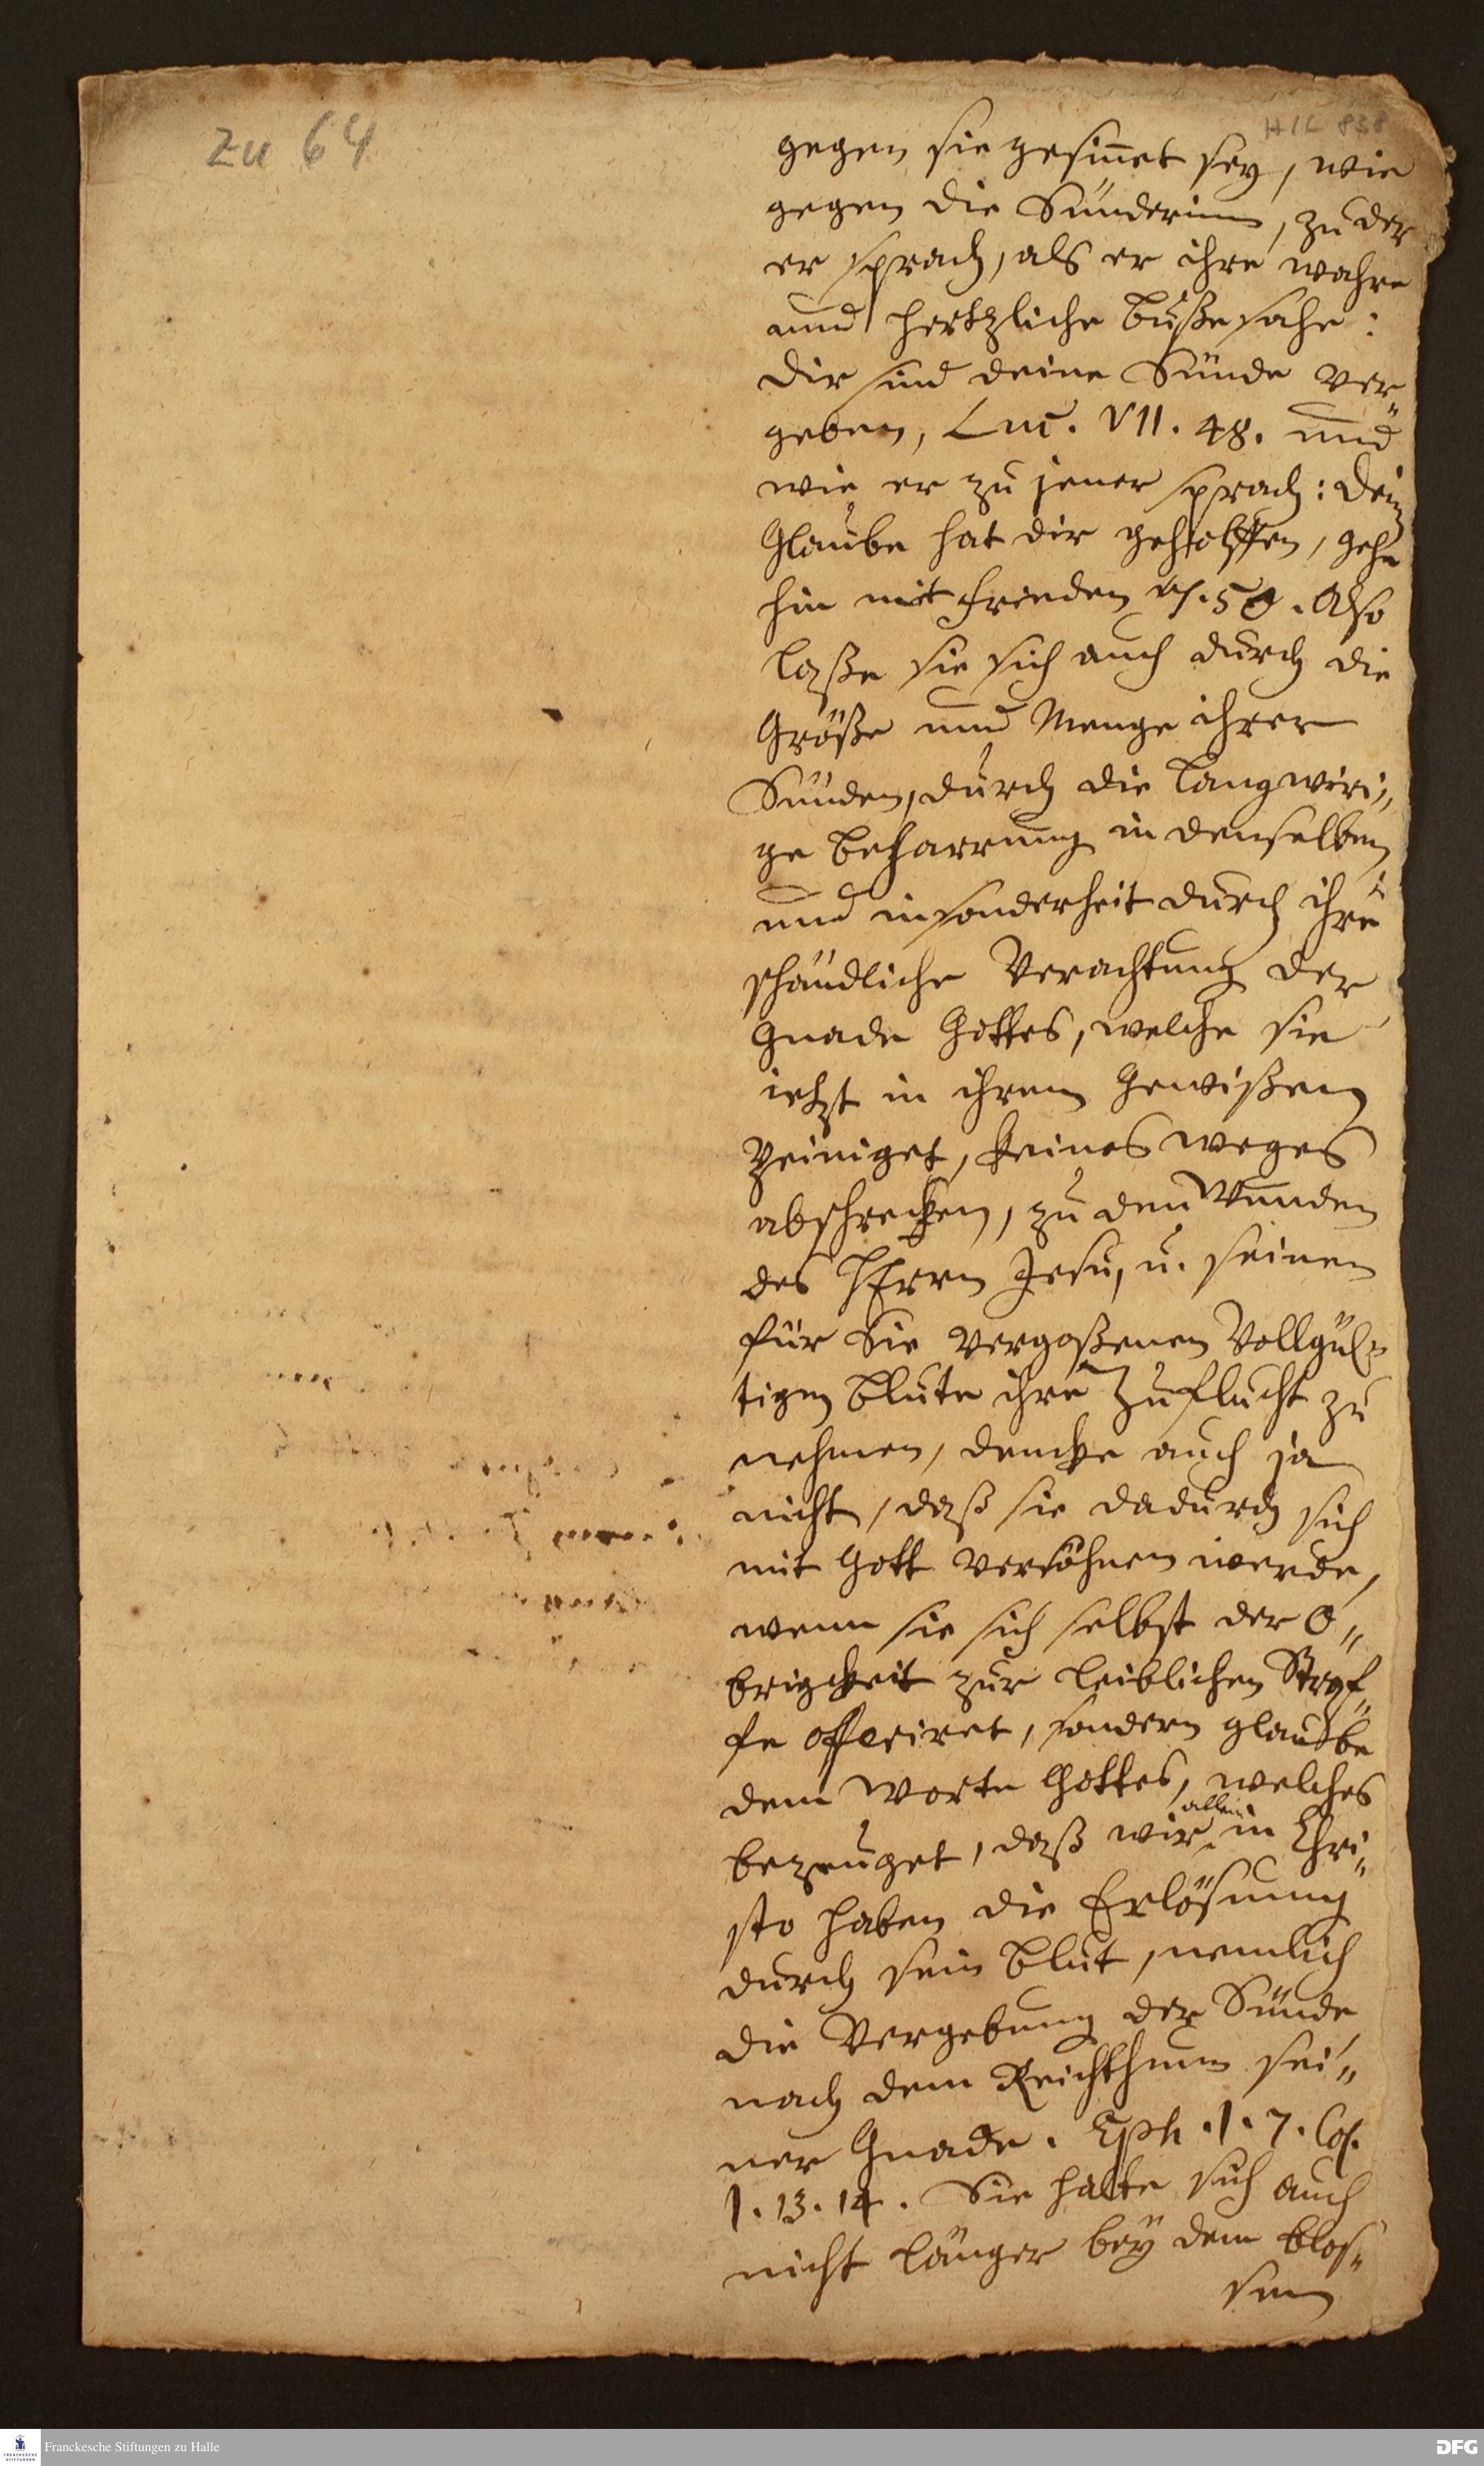 zu 64
H I C 838
gegen sie gesiñet sey, wie
gegen die Sünderinn, zu der
er sprach, als er ihre wahre
und hertzliche Buße sahe:
Dir sind deine Sünde ver„
geben, Luc. VII. 48. und
wie er zu jener sprach: Dein
Glaube hat dir geholffen, gehe
hin mit Frieden vs. 50. Also
laße sie sich auch durch die
Größe und Menge ihrer
Sünden, durch die langwiri„
ge Beharrung in denselben
und insonderheit durch ihre
schändliche Verachtung der
Gnade Gottes, welche sie
ietzt in ihrem Gewißen
peiniget, keines weges
abschrecken, zu den Wunden
des HErrn Jesu, u. seinem
für Sie vergoßenen Vollgül„
tigen Blute ihre Zuflucht zu
nehmen, dencke auch ja
nicht, daß sie dadurch sich
mit Gott versöhnen werde,
wenn sie sich selbst der O„
brigckeit zur leiblichen Straf„
fe offeriret, sondern glaube
dem Worte Gottes, welches
bezeuget, daß wir allein in Chri„
sto haben die Erlösung
durch sein Blut, nemlich
die Vergebung der Sünde
nach dem Reichthum sei„
ner Gnade. Eph. 1. 7. Col.
1. 13. 14. Sie halte sich auch
nicht länger bey dem blos„
sen
Franckesche Stiftungen zu Halle
DFG